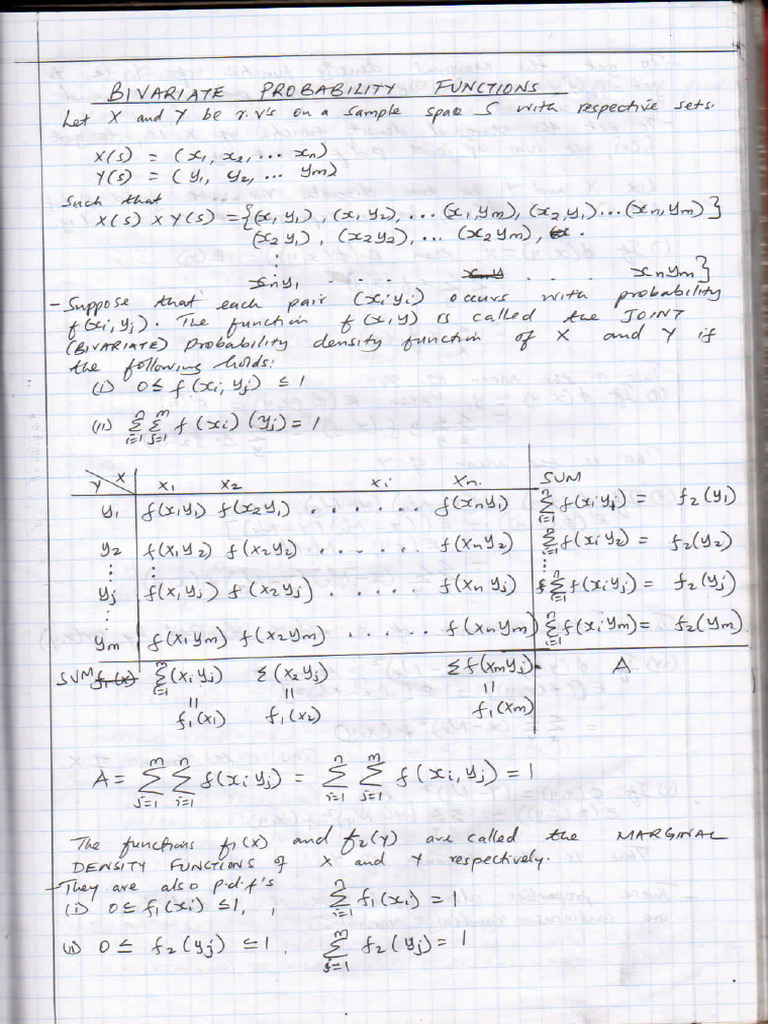 BIVARIATE PROBABILITY FUNCTIONS
Let X and Y be r.v's on a sample space S with respective sets.
X(s) = (x1, x2, ... xn)
Y(s) = (y1, y2, ... ym)
Such that
X(s) x Y(s) = {(x1, y1), (x1, y2), ... (x1, ym), (x2, y1) ... (xn, ym)}
(x2 y1), (x2 y2), ... (x2 ym),
⋮
xn y1 . . . . . x y . . . . xn ym}
- Suppose that each pair (xi yi) occurs with probability
f(xi, yj). The function f(x, y) is called the JOINT
(BIVARIATE) probability density function of X and Y if
the following holds:
(i) 0 ≤ f(xi, yj) ≤ 1
(ii) n∑i=1 m∑j=1 f(xi)(yj) = 1
Y X x1 x2 xi xn. SUM
y1 f(x1 y1) f(x2 y1) . . . . . . f(xn y1) n∑i=1 f(xi yj) = f2(y1)
y2 f(x1 y2) f(x2 y2) . . . . . . f(xn y2) n∑i=1 f(xi y2) = f2(y2)
⋮ ⋮ ⋮
yj f(x1 yj) f(x2 yj) . . . . . f(xn yj) n∑i=1 f(xi yj) = f2(yj)
⋮
ym f(x1 ym) f(x2 ym) . . . . . f(xn ym) n∑i=1 f(xi ym) = f2(ym)
SUM f1(x) n∑i=1 (xi yj) ∑(x2 yj) ∑f(xm yj) A
= = =
f1(x1) f1(x2) f1(xm)
A = m∑j=1 n∑i=1 f(xi yj) = n∑i=1 m∑j=1 f(xi, yj) = 1
The functions f1(x) and f2(y) are called the MARGINAL
DENSITY FUNCTIONS of X and Y respectively.
- They are also p.d.f's
(i) 0 ≤ f1(xi) ≤ 1, , n∑i=1 f1(xi) = 1
(ii) 0 ≤ f2(yj) ≤ 1. m∑j=1 f2(yj) = 1